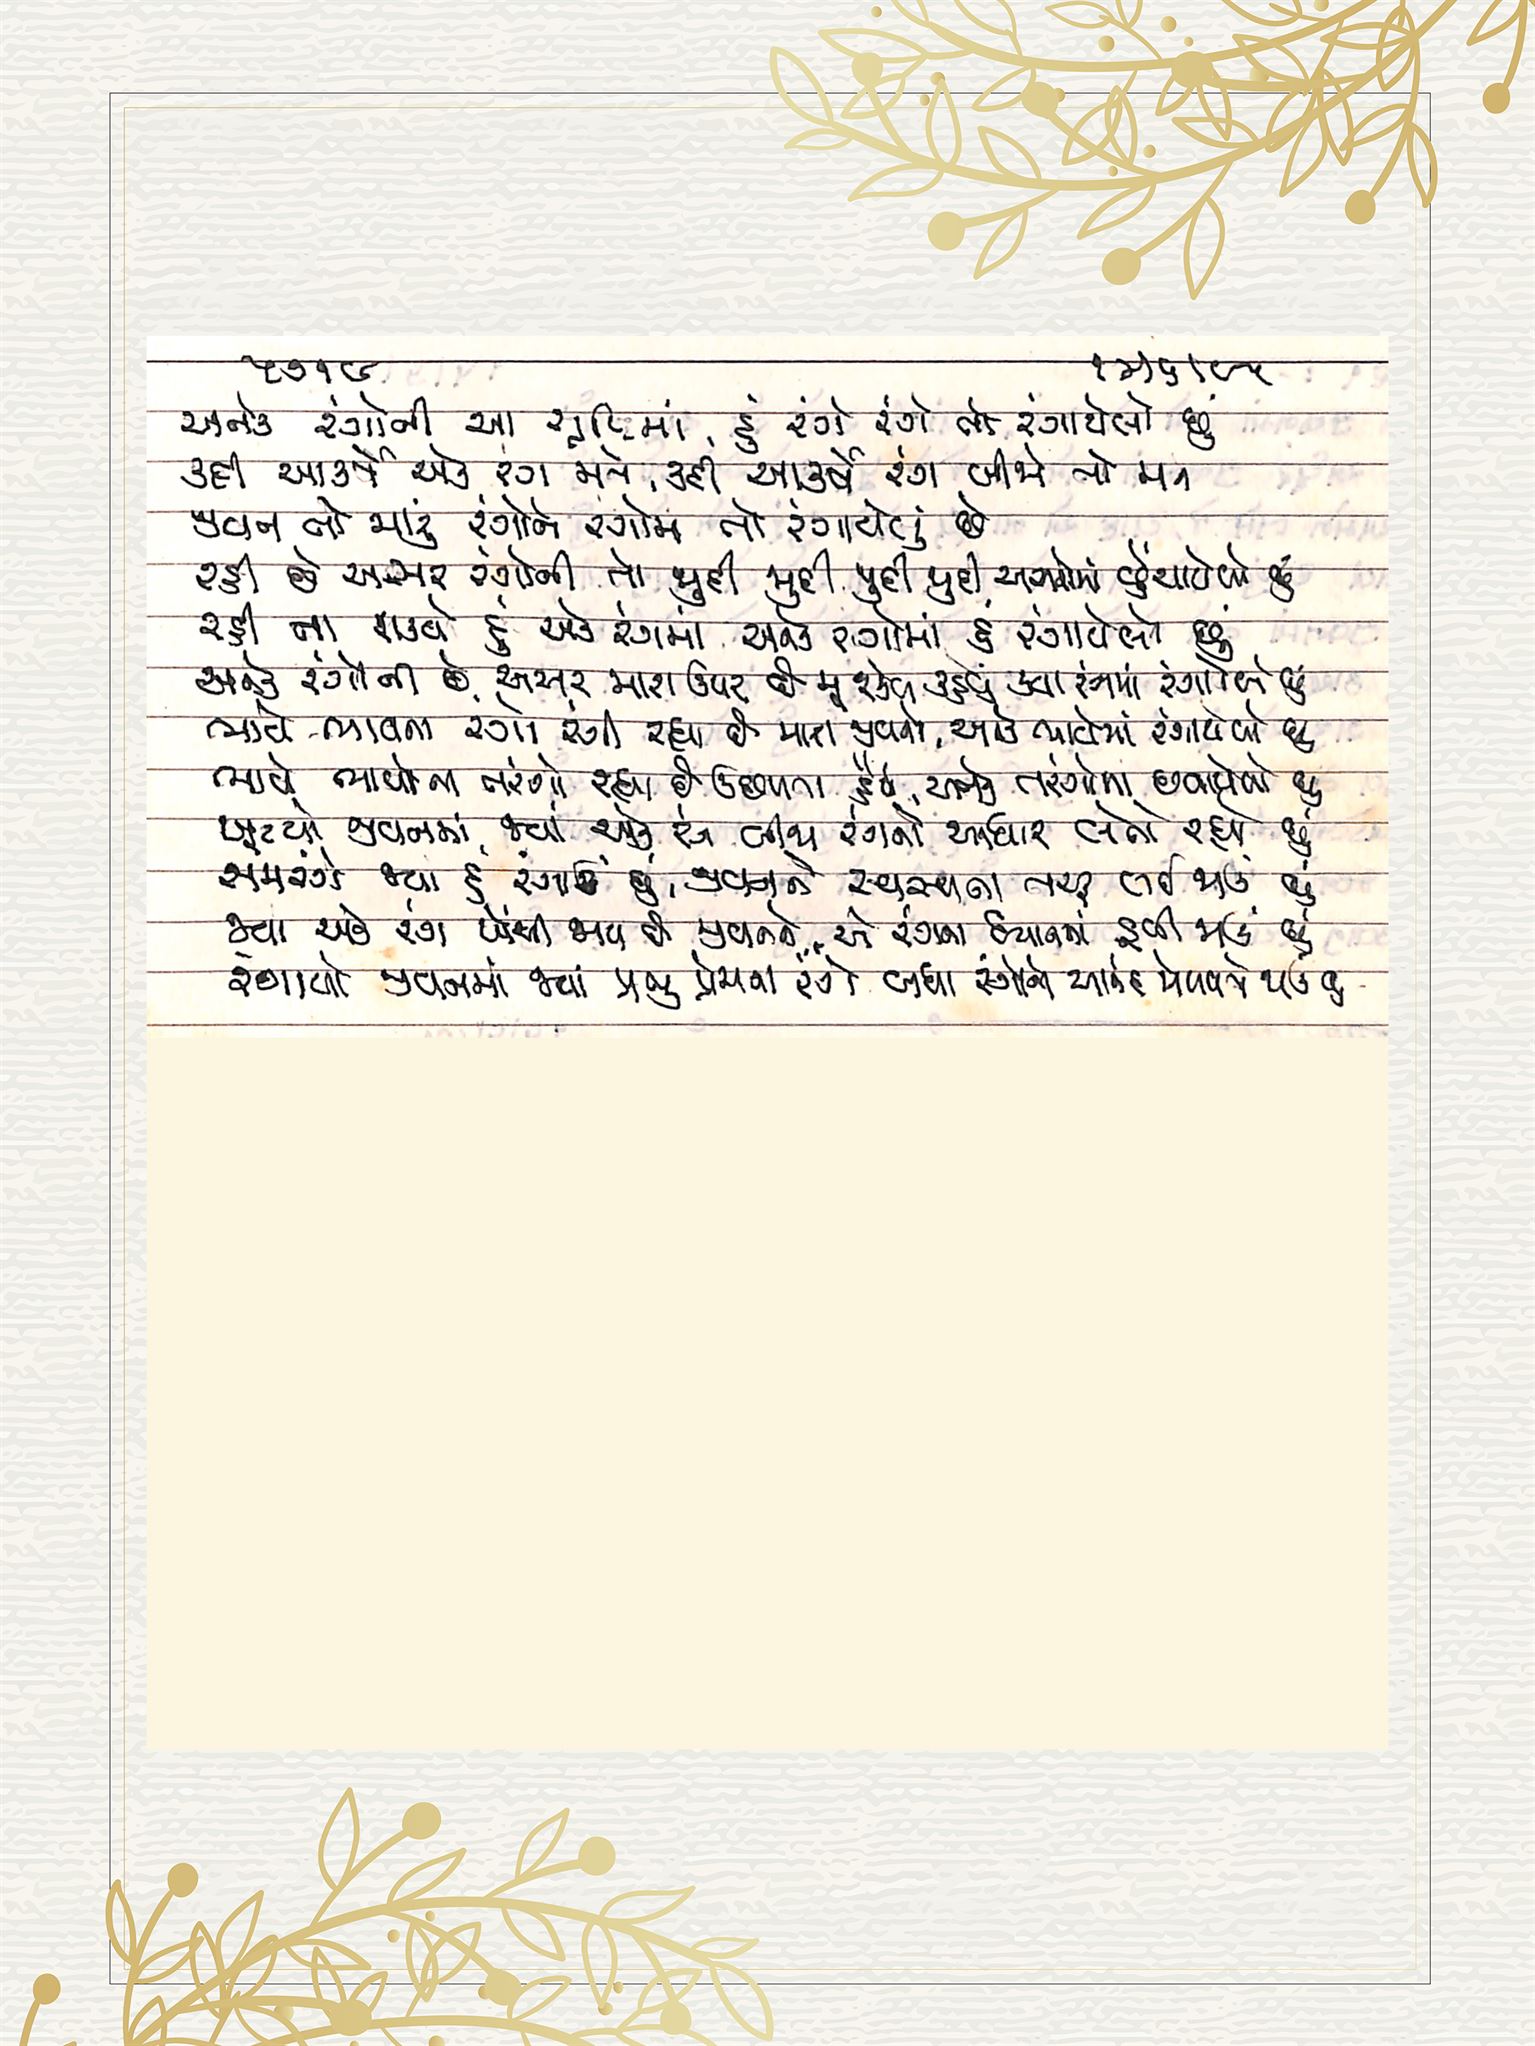 ૨૭૧૯
અનેક રંગોની આ સૃષ્ટિમાં, હું રંગે રંગે તો રંગાયેલો છું
કદી આકર્ષે એક રંગ મને, કદી આકર્ષે રંગ બીજો તો મને
જીવન તો મારું રંગોને રંગોમાં તો રંગાયેલું છે
રહી છે અસર રંગોની તો જુદી જુદી, જુદી જુદી અસરોમાં ખેંચાયેલો છું
રહી ના શકયો હું એક રંગમાં, અનેક રંગોમાં હું રંગાયેલો છું
અનેક રંગોની છે અસર મારા ઉપર છે મુશ્કેલ કહેવું કયા રંગમાં રંગાયેલો છું
ભાવે ભાવના રંગો રંગી રહ્યા છે મારા જીવનને, અનેક ભાવોમાં રંગાયેલો છું
ભાવે ભાવોના તરંગો રહ્યા છે ઉછળતા હૈયે, અનેક તરંગોમાં છવાયેલો છું
ખૂટયો જીવનમાં જ્યાં એક રંગ બીજા રંગનો આધાર લેતો રહ્યો છું
સમરંગે જ્યાં હું રંગાઉં છું, જીવનને સ્વસ્થતા તરફ લઈ જાઉં છું
જ્યાં એક રંગ ખેંચી જાય છે જીવનને, એ રંગના ધ્યાનમાં ડૂબી જાઉં છું
રંગાયો જીવનમાં જ્યાં પ્રભુ પ્રેમના રંગે બધા રંગોનો આનંદ મેળવતો જાઉં છું